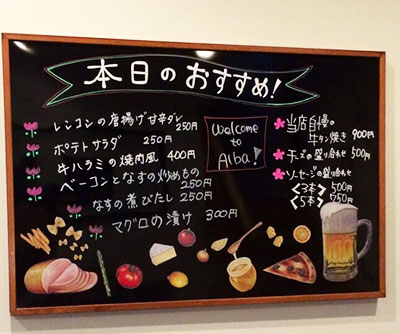 本日のおすすめ!
レンコンの唐揚げ甘辛ダレ
250円
ポテトサラダ 250円
牛ハラミの焼肉風 400円
ベーコンとなすの炒めもの
250円
なすの煮びたし 250円
マグロの漬け 300円
Welcome
to
Alba!
当店自慢の
牛タン焼き 900円
チーズの盛り合わせ 500円
ソーセージの盛り合わせ
<3本> 500円
<5本> 750円